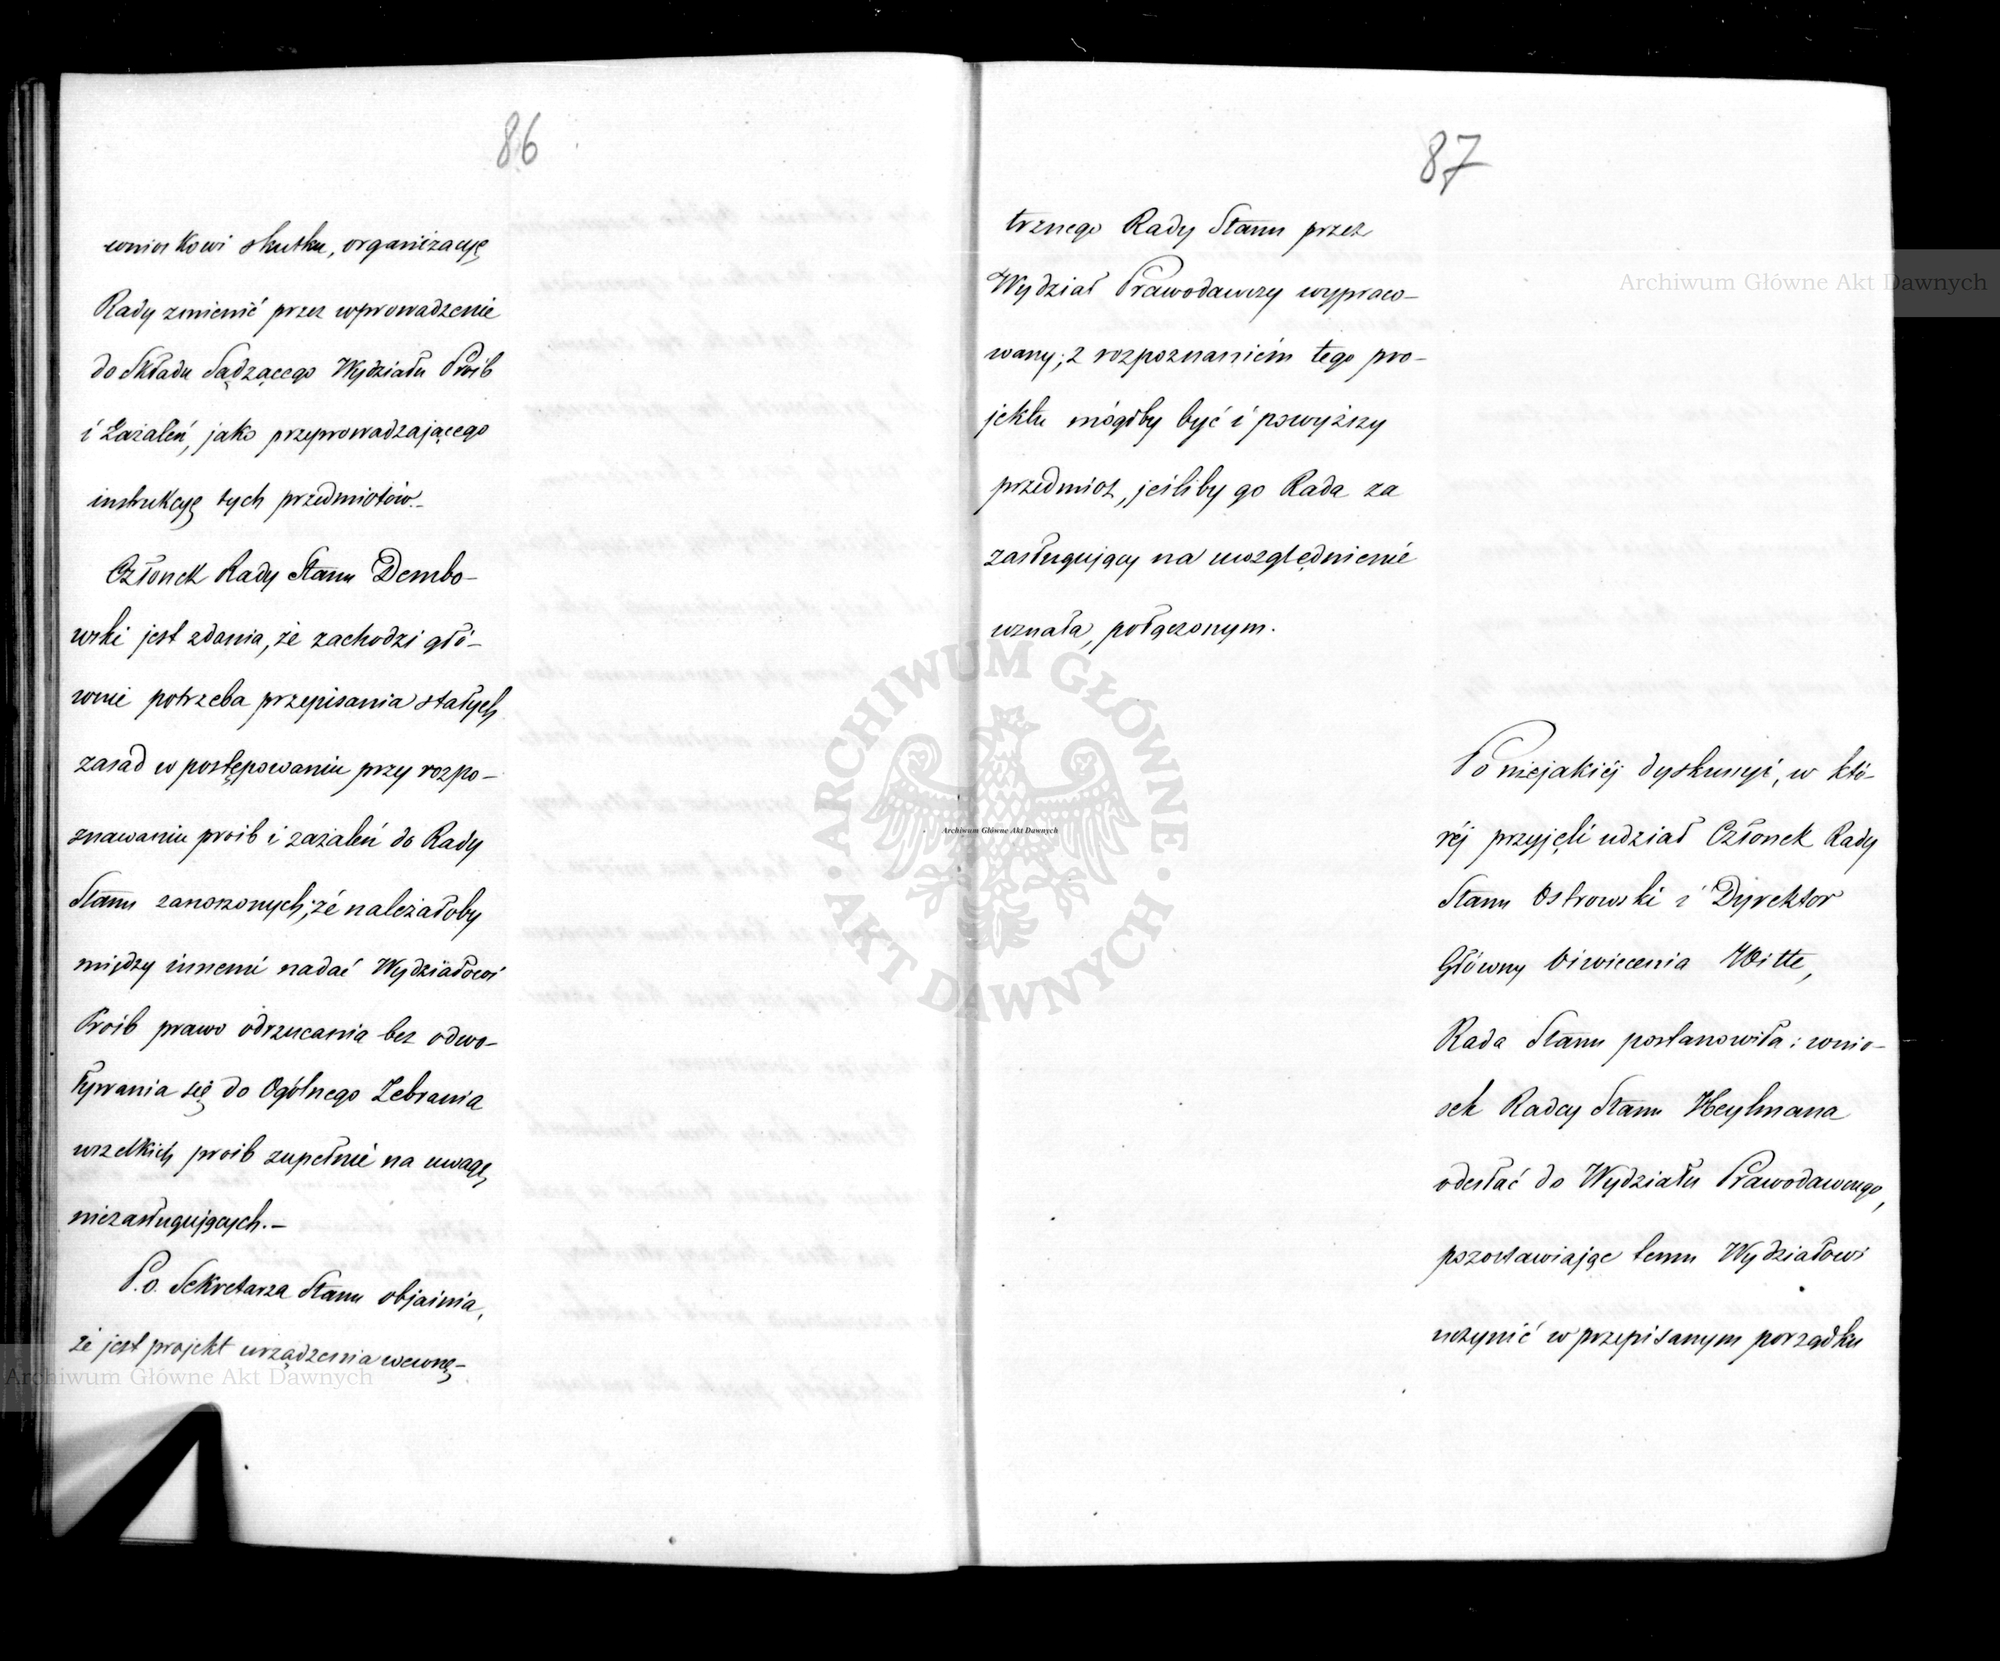 86
wnioskowi skutku, organizacyę
Rady zmienić przez wprowadzenie
do Składu Sądzącego Wydziału Próśb
i Zażaleń, jako przeprowadzającego
instrukcyę tych przedmiotów.-
Członek Rady Stanu Dembo-
wski jest zdania, że zachodzi głó-
wnie potrzeba przepisania stałych
zasad w postępowaniu przy rozpo-
znawaniu próśb i zażaleń do Rady
Stanu zanoszonych; że należałoby
między innemi nadać Wydziałowi
Próśb prawo odrzucania bez odwo-
ływania się do Ogólnego Zebrania
wszelkich próśb zupełnie na uwagę
niezasługujących.-
P.o. Sekretarza Stanu objaśnia,
że jest projekt urządzenia wewnę-
87
trznego Rady Stanu przez
Wydział Prawodawczy wypraco-
wany; z rozpoznaniem tego pro-
jektu mógłby być i powyższy
przedmiot, jeśliby go Rada za
zasługujący na uwzględnienie
uznała, połączonym.
Po niejakiéj dyskussyi, w któ-
réj przyjęli udział Członek Rady
Stanu Ostrowski i Dyrektor
Główny Oświecenia Witte,
Rada Stanu postanowiła: wnio-
sek Radcy Stanu Heylmana
odesłać do Wydziału Prawodawczego,
pozostawiając temu Wydziałowi
uczynić w przepisanym porządku
Archiwum Główne Akt Dawnych
Archiwum Główne Akt Dawnych
Archiwum Główne Akt Dawnych
ARCHIWUM GŁÓWNE
AKT DAWNYCH